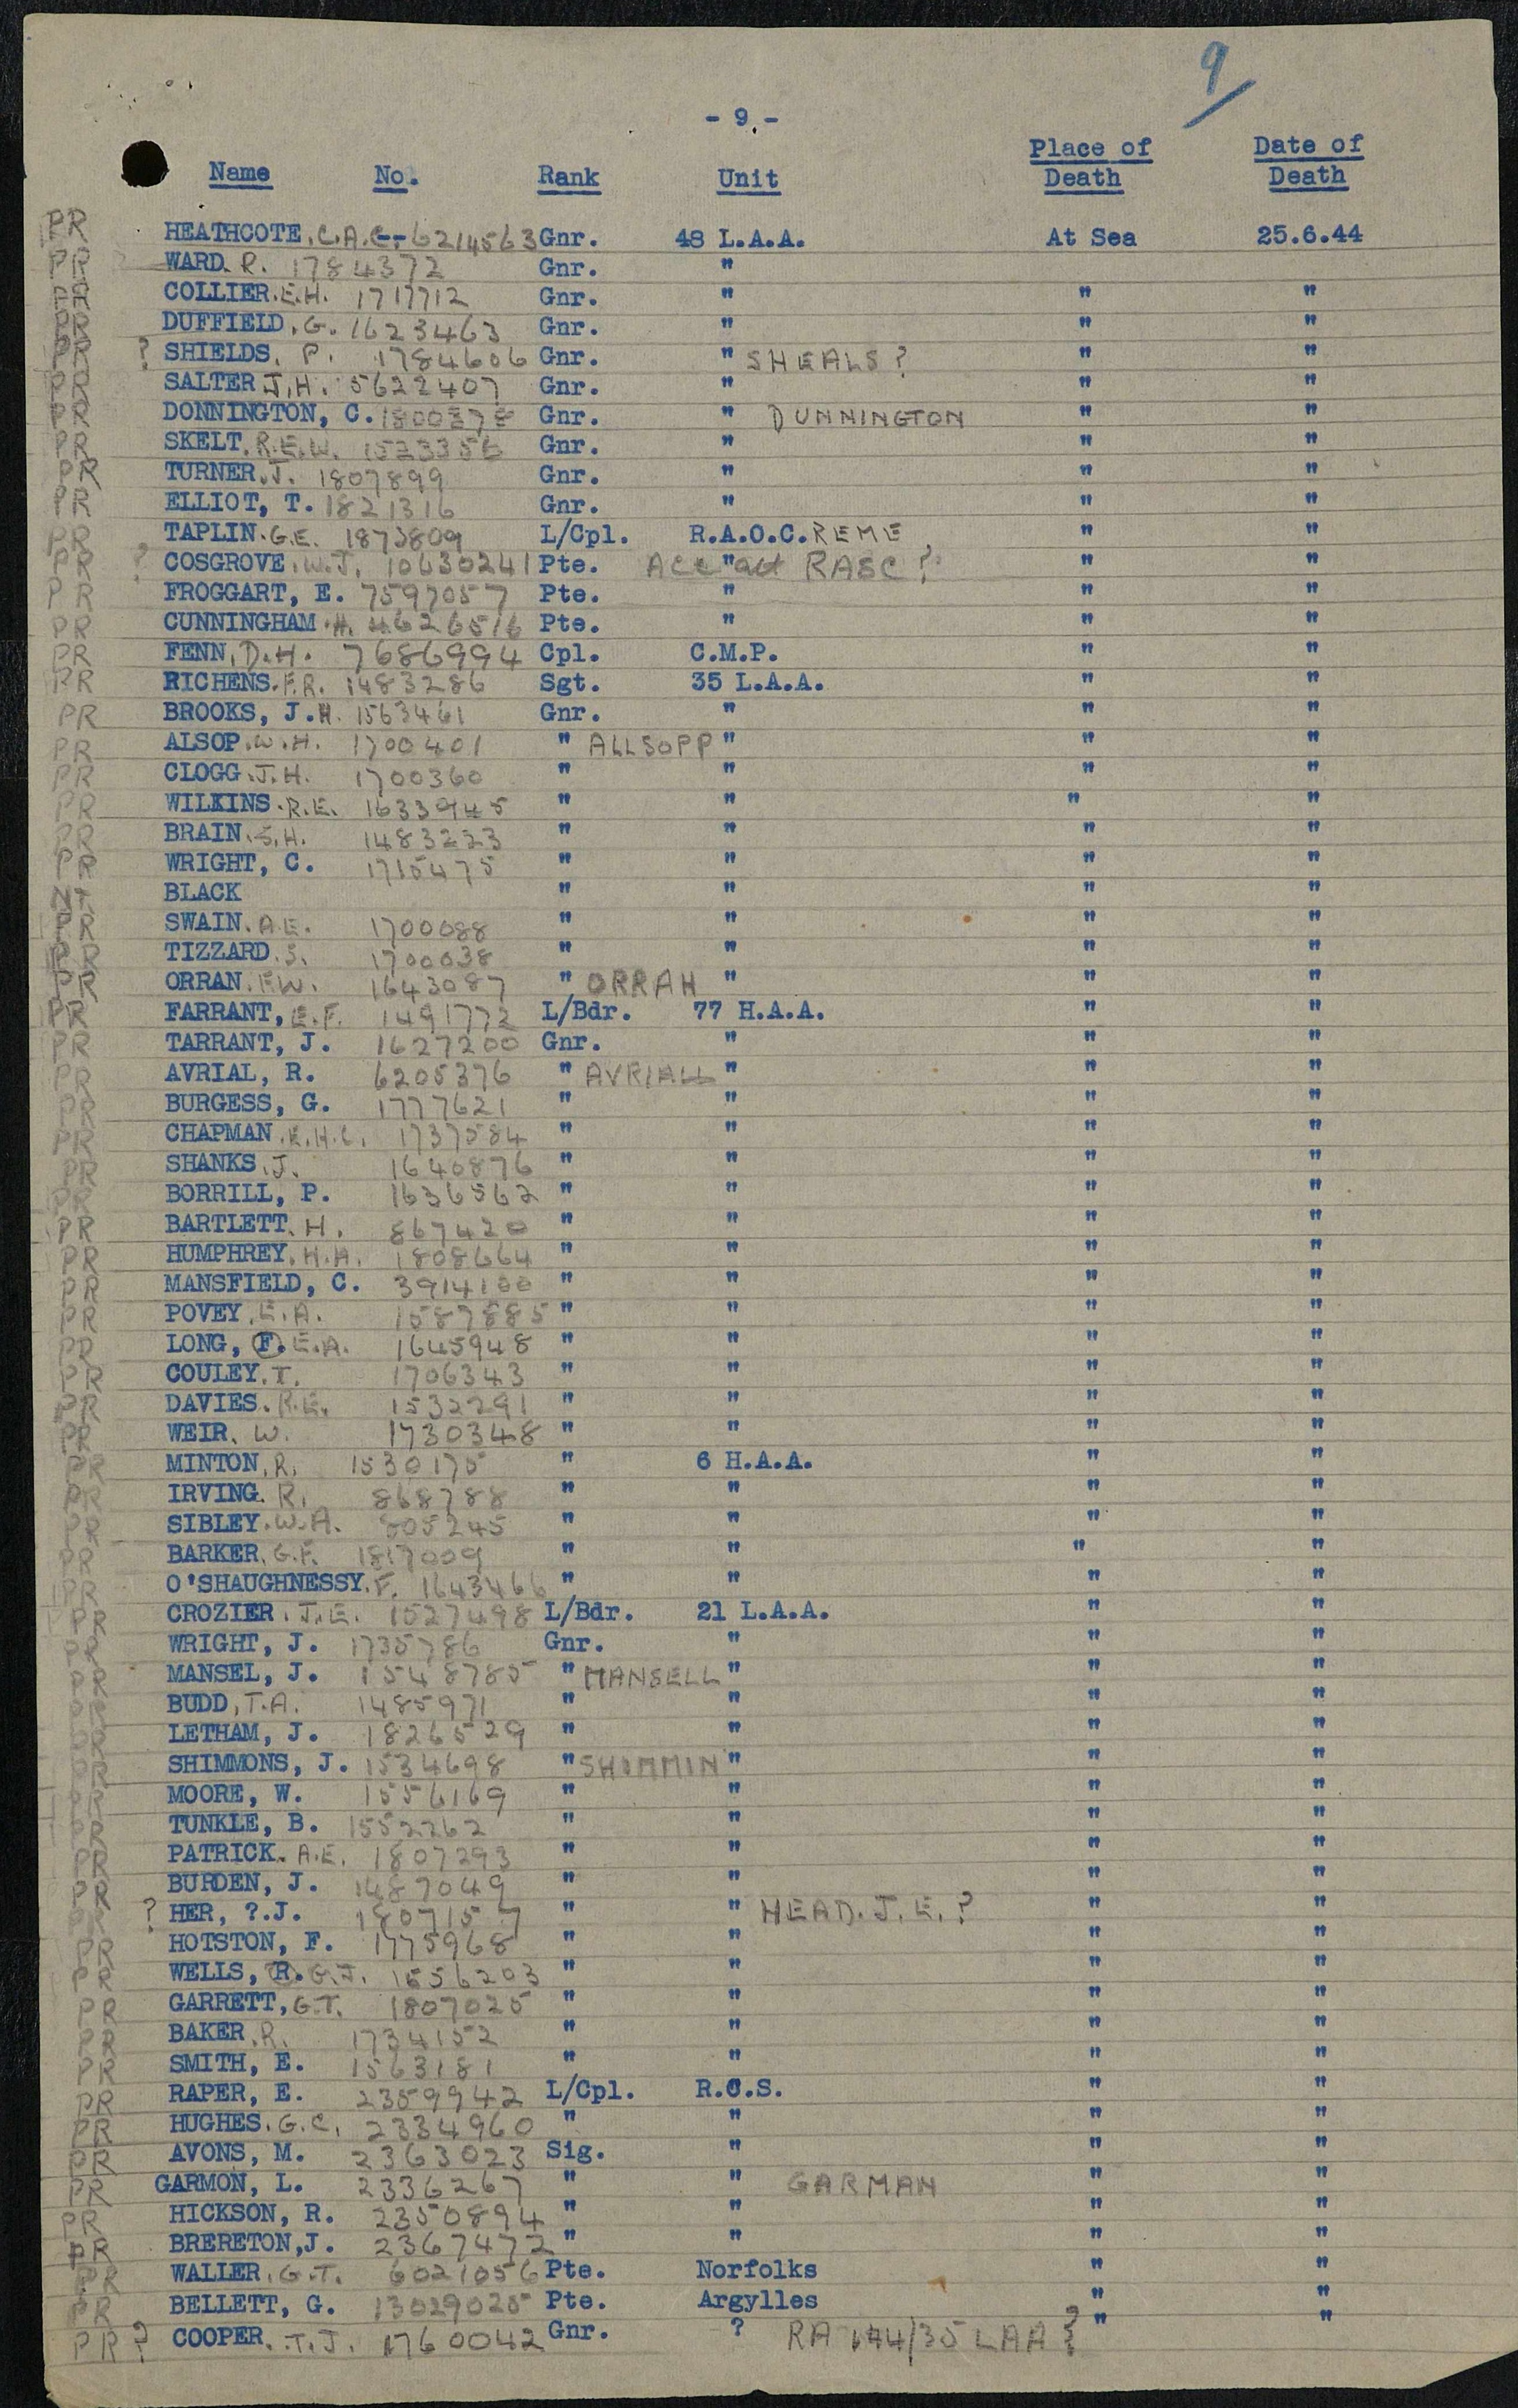 9
- 9. -
Name No. Rank Unit Place of Death Date of Death
PR HEATHCOTE. C.A.C. 6214563 Gnr. 48 L.A.A. At Sea 25.6.44
PR WARD. R. 1784372 Gnr. "
PR COLLIER. E.H. 1717712 Gnr. " " "
PR DUFFIELD. G. 1623463 Gnr. " " "
PR ? SHIELDS. P. 1784606 Gnr. " SHEALS? " "
PR SALTER J.H. 5622407 Gnr. " " "
PR DONNINGTON, C. Gnr. " DUNNINGTON " "
PR SKELT. R.E.W. Gnr. " " "
PR TURNER. J. 1807899 Gnr. " " "
PR ELLIOT, T. 1821316 Gnr. " " "
PR TAPLIN. G.E. 1873809 L/Cpl. R.A.O.C. REME " "
PR ? COSGROVE. W.J. 10630241 Pte. " Acc att RASC? " "
PR FROGGART, E. 7597057 Pte. " " "
PR CUNNINGHAM. H. 4626516 Pte. " " "
PR FENN. D.H. 7686994 Cpl. C.M.P. " "
PR RICHENS. F.R. 1483286 Sgt. 35 L.A.A. " "
PR BROOKS, J.H. 1563461 Gnr. " " "
PR ALSOP. W.H. 1700401 " ALLSOPP " " "
PR CLOGG. J.H. 1700360 " " " "
PR WILKINS. R.E. 1633945 " " " "
PR BRAIN. S.H. 1483223 " " " "
PR WRIGHT, C. 1715475 " " " "
BLACK " " " "
PR SWAIN. A.E. 1700088 " " " "
PR TIZZARD. S. 1700038 " " " "
PR ORRAN. F.W. 1643087 " ORRAH " " "
PR FARRANT, E.F. 1491772 L/Bdr. 77 H.A.A. " "
PR TARRANT, J. 1627200 Gnr. " " "
PR AVRIAL, R. 6205376 " AVRIALL " " "
PR BURGESS, G. 1777621 " " " "
PR CHAPMAN. E.H.C. 1737584 " " " "
PR SHANKS. J. 1640876 " " " "
PR BORRILL, P. 1636562 " " " "
PR BARTLETT. H. 867420 " " " "
PR HUMPHREY. H.A. 1808664 " " " "
PR MANSFIELD, C. 3914100 " " " "
PR POVEY. E.A. 1587885 " " " "
PR LONG, F. E.A. 1645948 " " " "
PR COULEY. T. 1706343 " " " "
PR DAVIES. R.E. 1532291 " " " "
PR WEIR. W. 1730348 " " " "
PR MINTON. R. 1530175 " 6 H.A.A. " "
PR IRVING. R. 868788 " " " "
PR SIBLEY. W.A. 805245 " " " "
PR BARKER. G.F. 1817009 " " " "
PR O'SHAUGHNESSY. F. 1643466 " " " "
PR CROZIER. J.E. 1527498 L/Bdr. 21 L.A.A. " "
PR WRIGHT, J. 1735786 Gnr. " " "
PR MANSEL, J. 1548785 " MANSELL " " "
PR BUDD, T.A. 1485971 " " " "
PR LETHAM, J. 1826529 " " " "
PR SHIMMONS, J. 1534698 " SHIMMIN " " "
PR MOORE, W. 1556169 " " " "
PR TUNKLE, B. 1552262 " " " "
PR PATRICK. A.E. 1807293 " " " "
PR BURDEN, J. 1487049 " " " "
PR ? HER, ?.J. " " HEAD. J.E.? " "
PR HOTSTON, F. 1775968 " " " "
PR WELLS, R. G.J. 1556203 " " " "
PR GARRETT, G.T. 1807025 " " " "
PR BAKER. R. 1734152 " " " "
PR SMITH, E. 1563181 " " " "
PR RAPER, E. 2359942 L/Cpl. R.C.S. " "
PR HUGHES. G.C. 2334960 " " " "
PR AVONS, M. 2363023 Sig. " " "
PR GARMON, L. 2336267 " " GARMAN " "
PR HICKSON, R. 2350894 " " " "
PR BRERETON, J. 2367472 " " " "
PR WALLER. G.T. 6021056 Pte. Norfolks " "
PR BELLETT, G. 13029025 Pte. Argylles " "
PR ? COOPER. T.J. 1760042 Gnr. ? RA 144/35 LAA ? " "